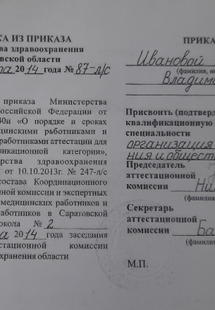 КА ИЗ ПРИКАЗА
ства здравоохранения
овской области
2014 года № 87-л/с
приказа Министерства
Российской Федерации от
«О порядке и сроках
ицинскими работниками и
работниками аттестации для
фикационной категории»,
ства здравоохранения
от 10.10.2013г. № 247-л/с
состава Координационной
комиссии и экспертных
медицинских работников и
работников в Саратовской
окола № 2
2014 года заседания
стационной комиссии
охранения области
ПРИКАЗ
Ивановой
(фамилия,
Владими
Присвоить (подтверд
квалификационную
специальности
организация
ния и общест
Председатель
аттестационной
комиссии
(фами
Секретарь
аттестационной
комиссии Ба
(фам
М.П.